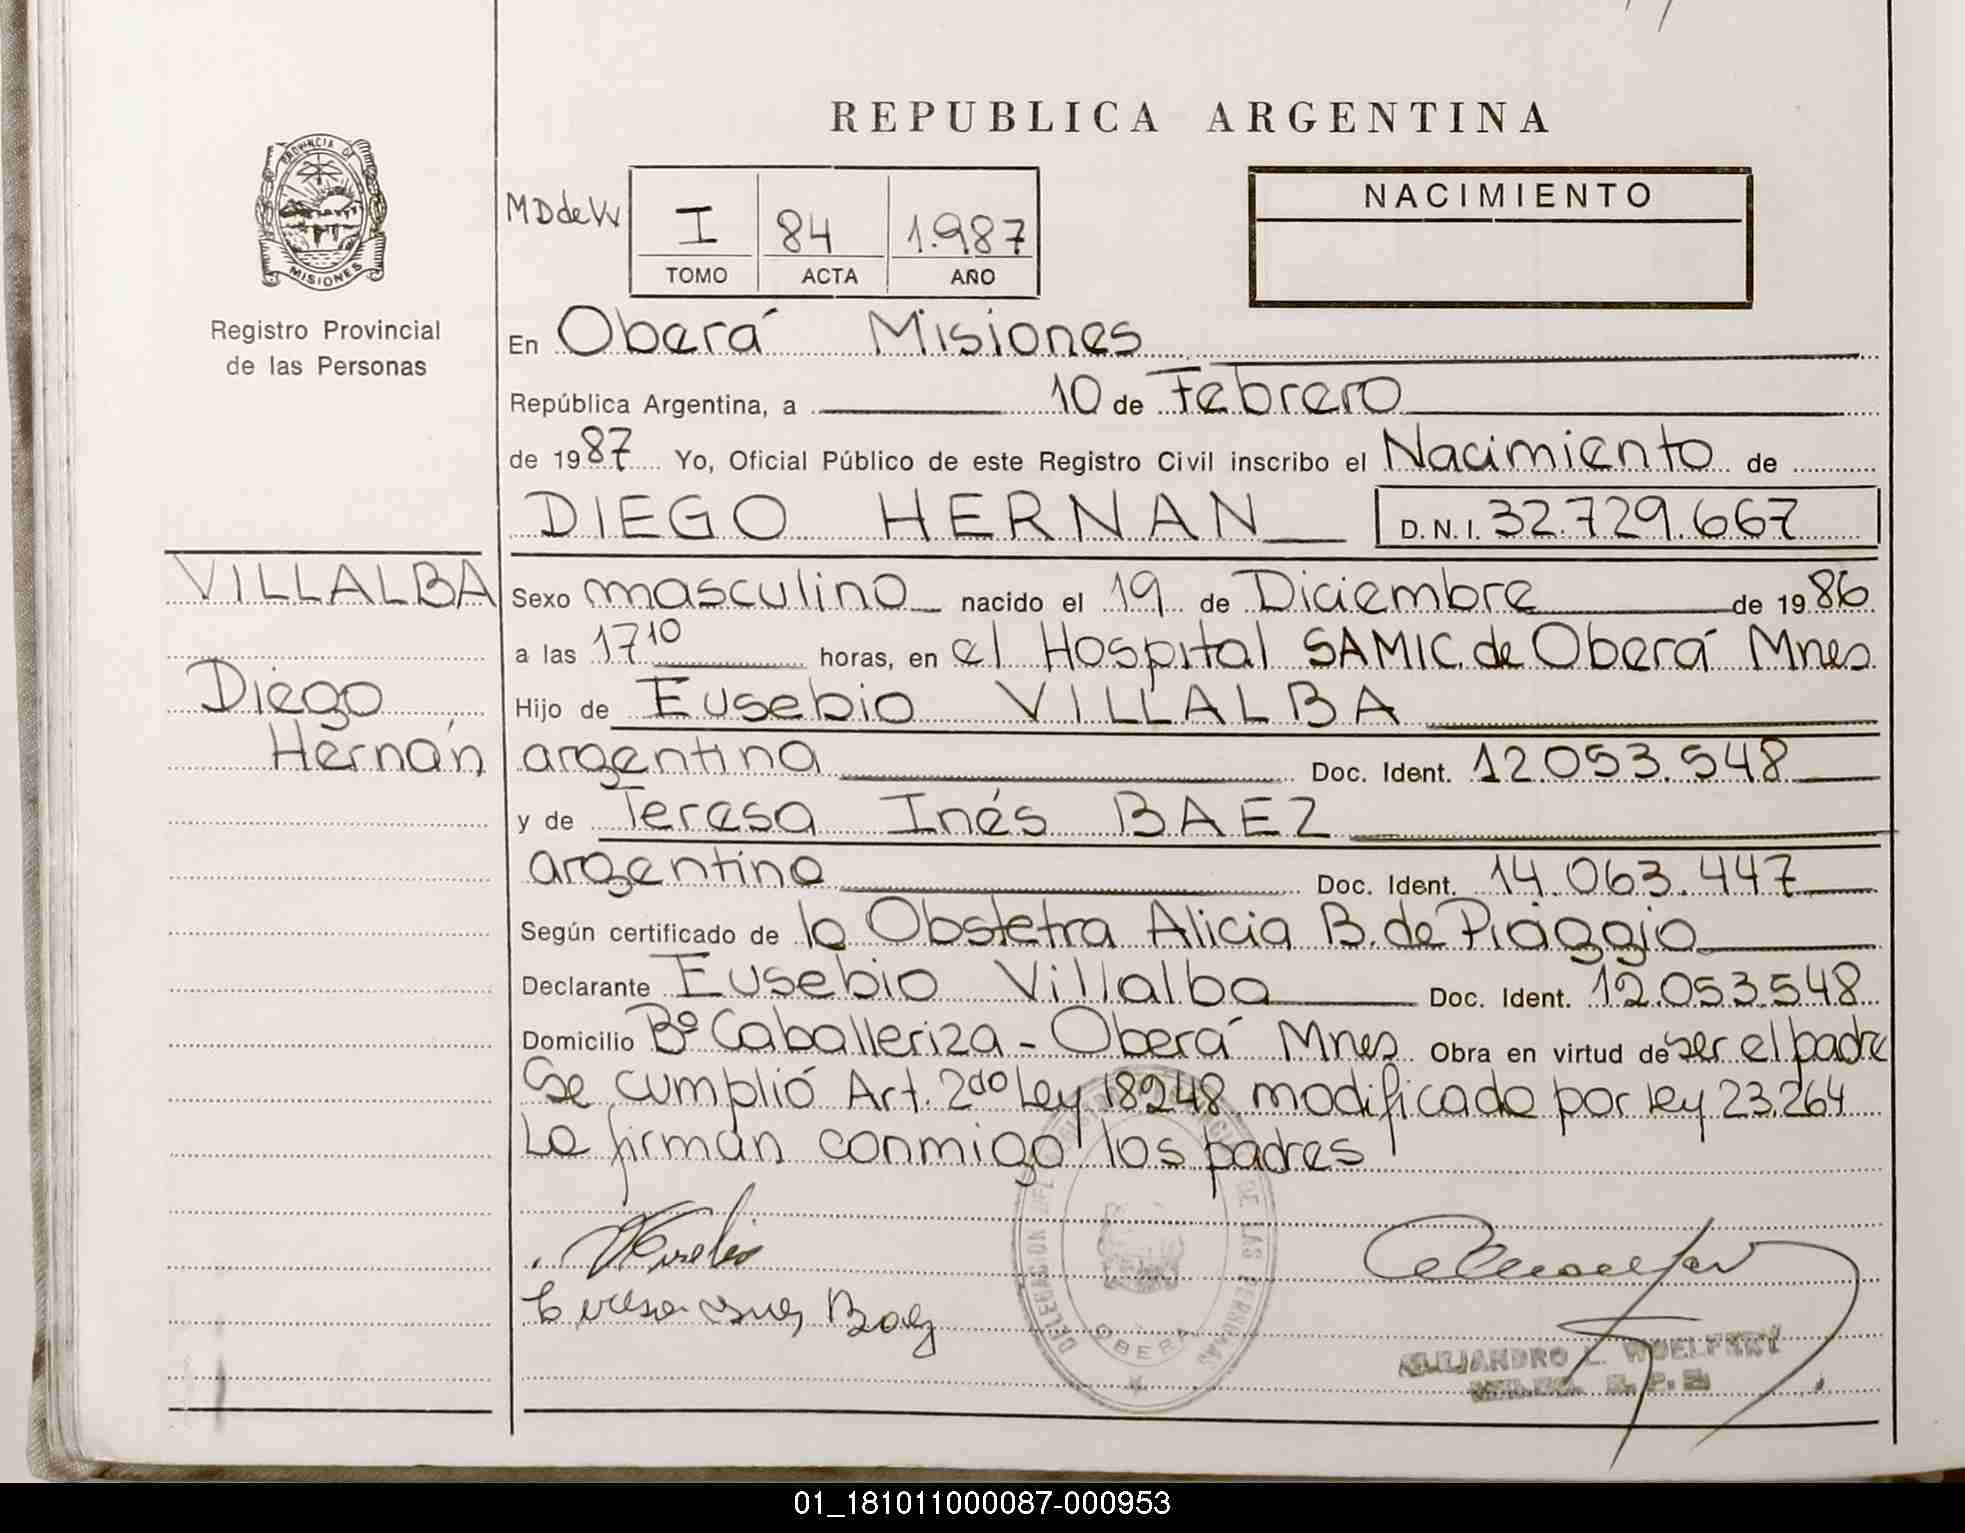 REPUBLICA ARGENTINA
PROVINCIA DE
MISIONES
Registro Provincial
de las Personas
MDdeVv
I 84 1.987
TOMO ACTA AÑO
NACIMIENTO
En Oberá Misiones
República Argentina, a 10 de Febrero
de 1987 Yo, Oficial Público de este Registro Civil inscribo el Nacimiento de
DIEGO HERNAN D.N.I. 32.729.667
VILLALBA
Diego
Hernán
Sexo masculino nacido el 19 de Diciembre de 1986
a las 17 10 horas, en el Hospital SAMIC. de Oberá Mnes
Hijo de Eusebio VILLALBA
argentina Doc. Ident. 12.053.548
y de Teresa Inés BAEZ
argentina Doc. Ident. 14.063.447
Según certificado de la Obstetra Alicia B. de Piaggio
Declarante Eusebio Villalba Doc. Ident. 12.053.548
Domicilio Bº Caballeriza - Oberá Mnes Obra en virtud de ser el padre
Se cumplió Art. 2do Ley 18248 modificada por ley 23.264
La firman conmigo los padres
DELEGACION DEL DE LAS PERSONAS
OBERA
Baez
ALEJANDRO L. WOELFERT
01_181011000087-000953